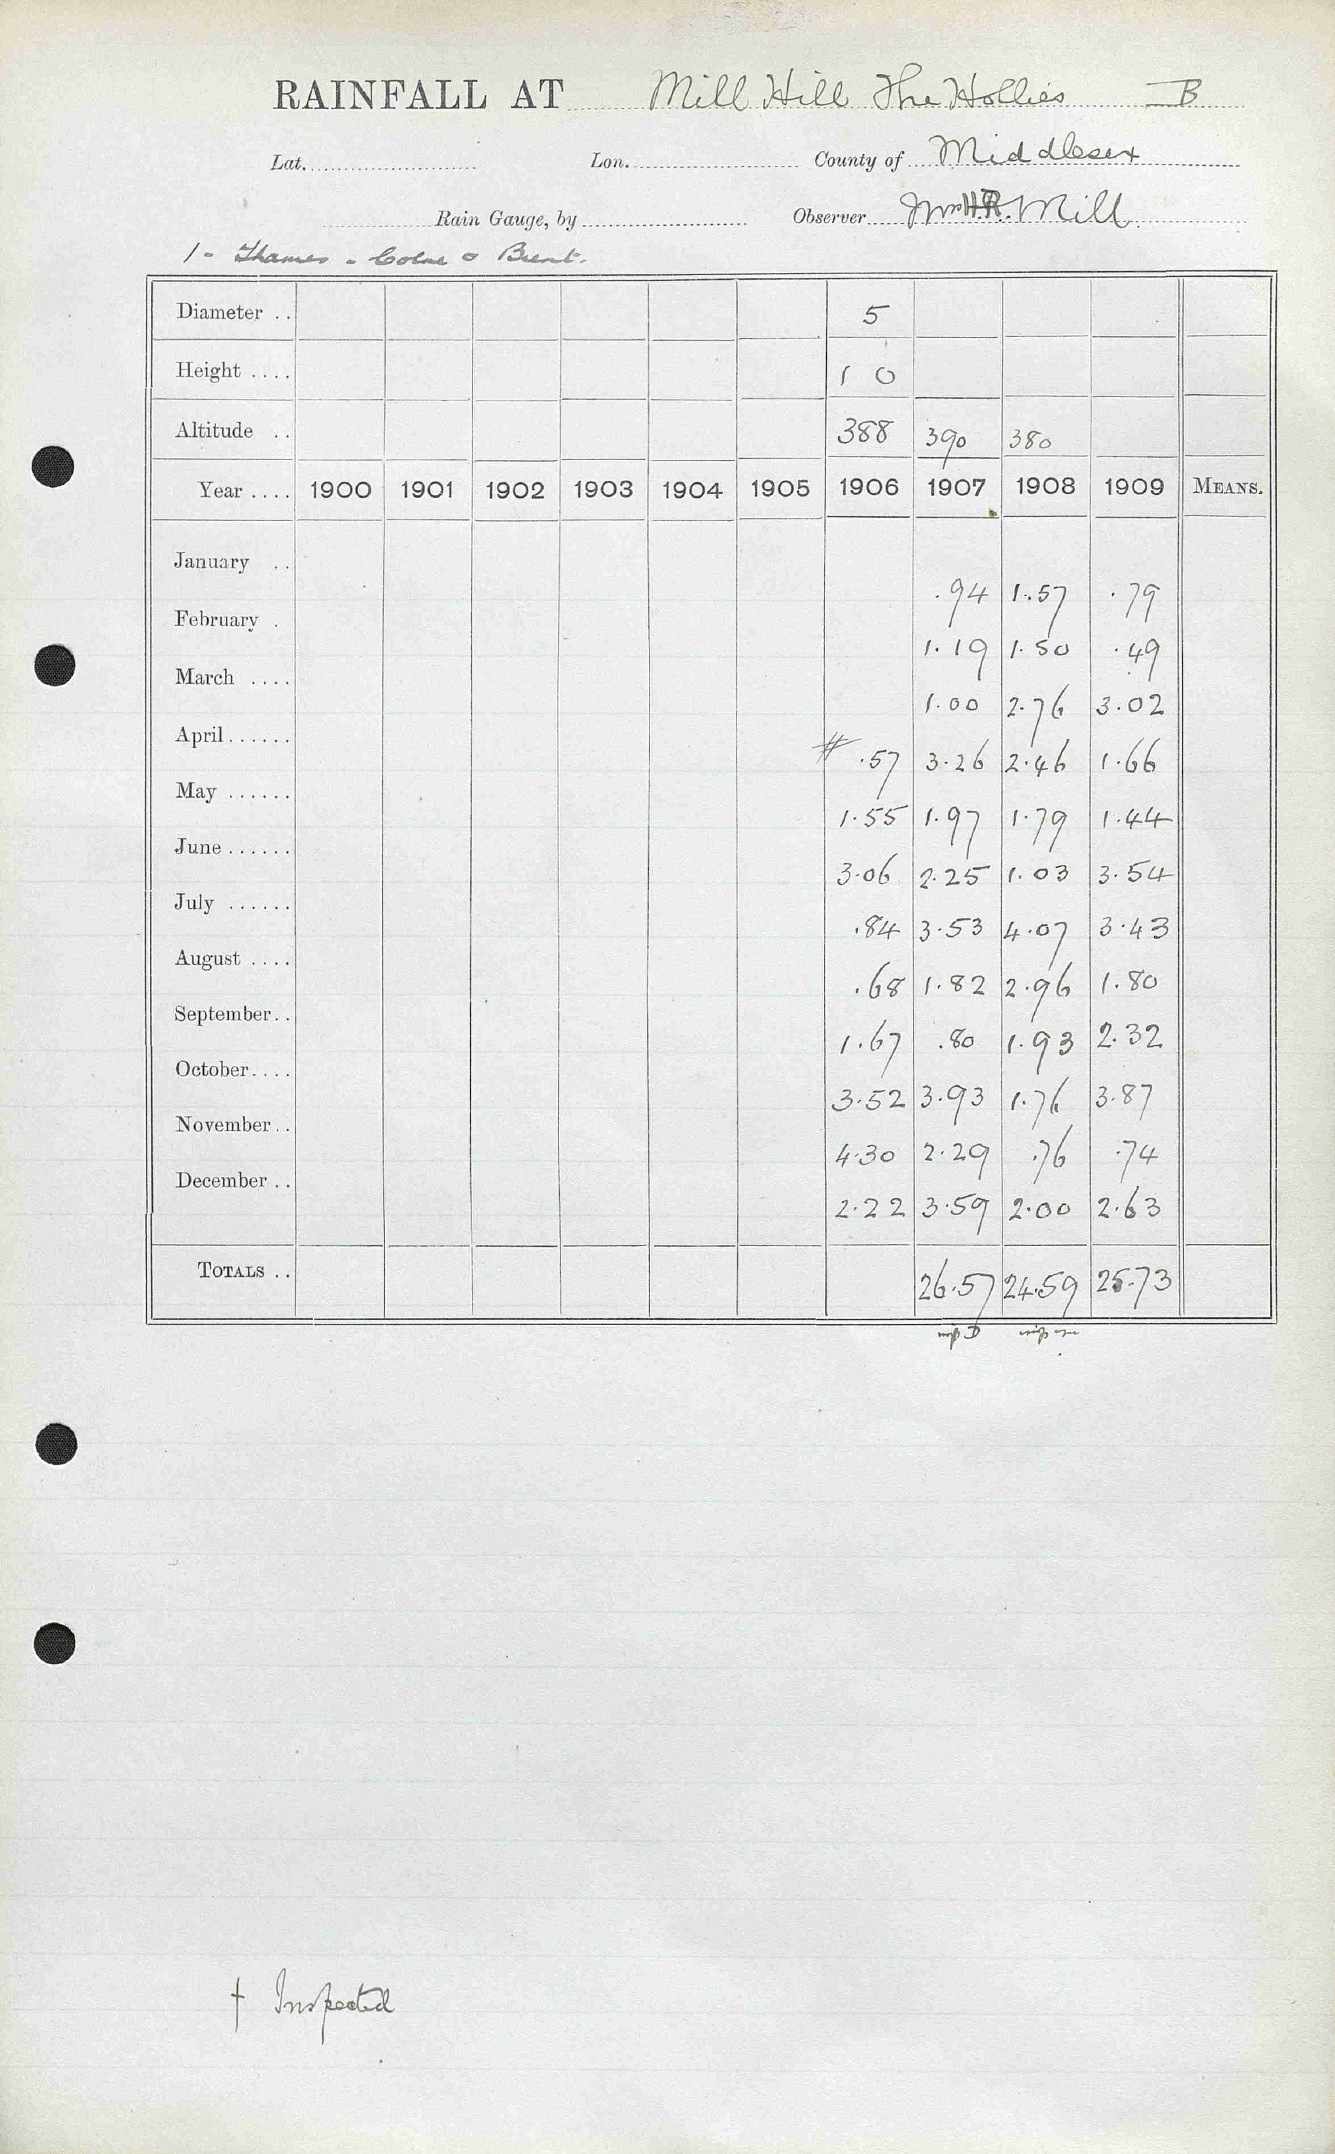 RAINFALL AT Mill Hill The Hollies B
Lat. Lon. County of Middlesex
Rain Gauge, by Observer Mrs H.R. Mill
1 - Thames - Colne & Brent.
Diameter .. 5
Height .... 1 0
Altitude .. 388 390 380
Year .... 1900 1901 1902 1903 1904 1905 1906 1907 1908 1909 MEANS.
January .. .94 1.57 .79
February . 1.19 1.50 .49
March .... 1.00 2.76 3.02
April...... # .57 3.26 2.46 1.66
May ...... 1.55 1.97 1.79 1.44
June ...... 3.06 2.25 1.03 3.54
July ...... .84 3.53 4.07 3.43
August .... .68 1.82 2.96 1.80
September.. 1.67 .80 1.93 2.32
October.... 3.52 3.93 1.76 3.87
November.. 4.30 2.29 .76 .74
December .. 2.22 3.59 2.00 2.63
TOTALS .. 26.57 24.59 25.73
† Inspected